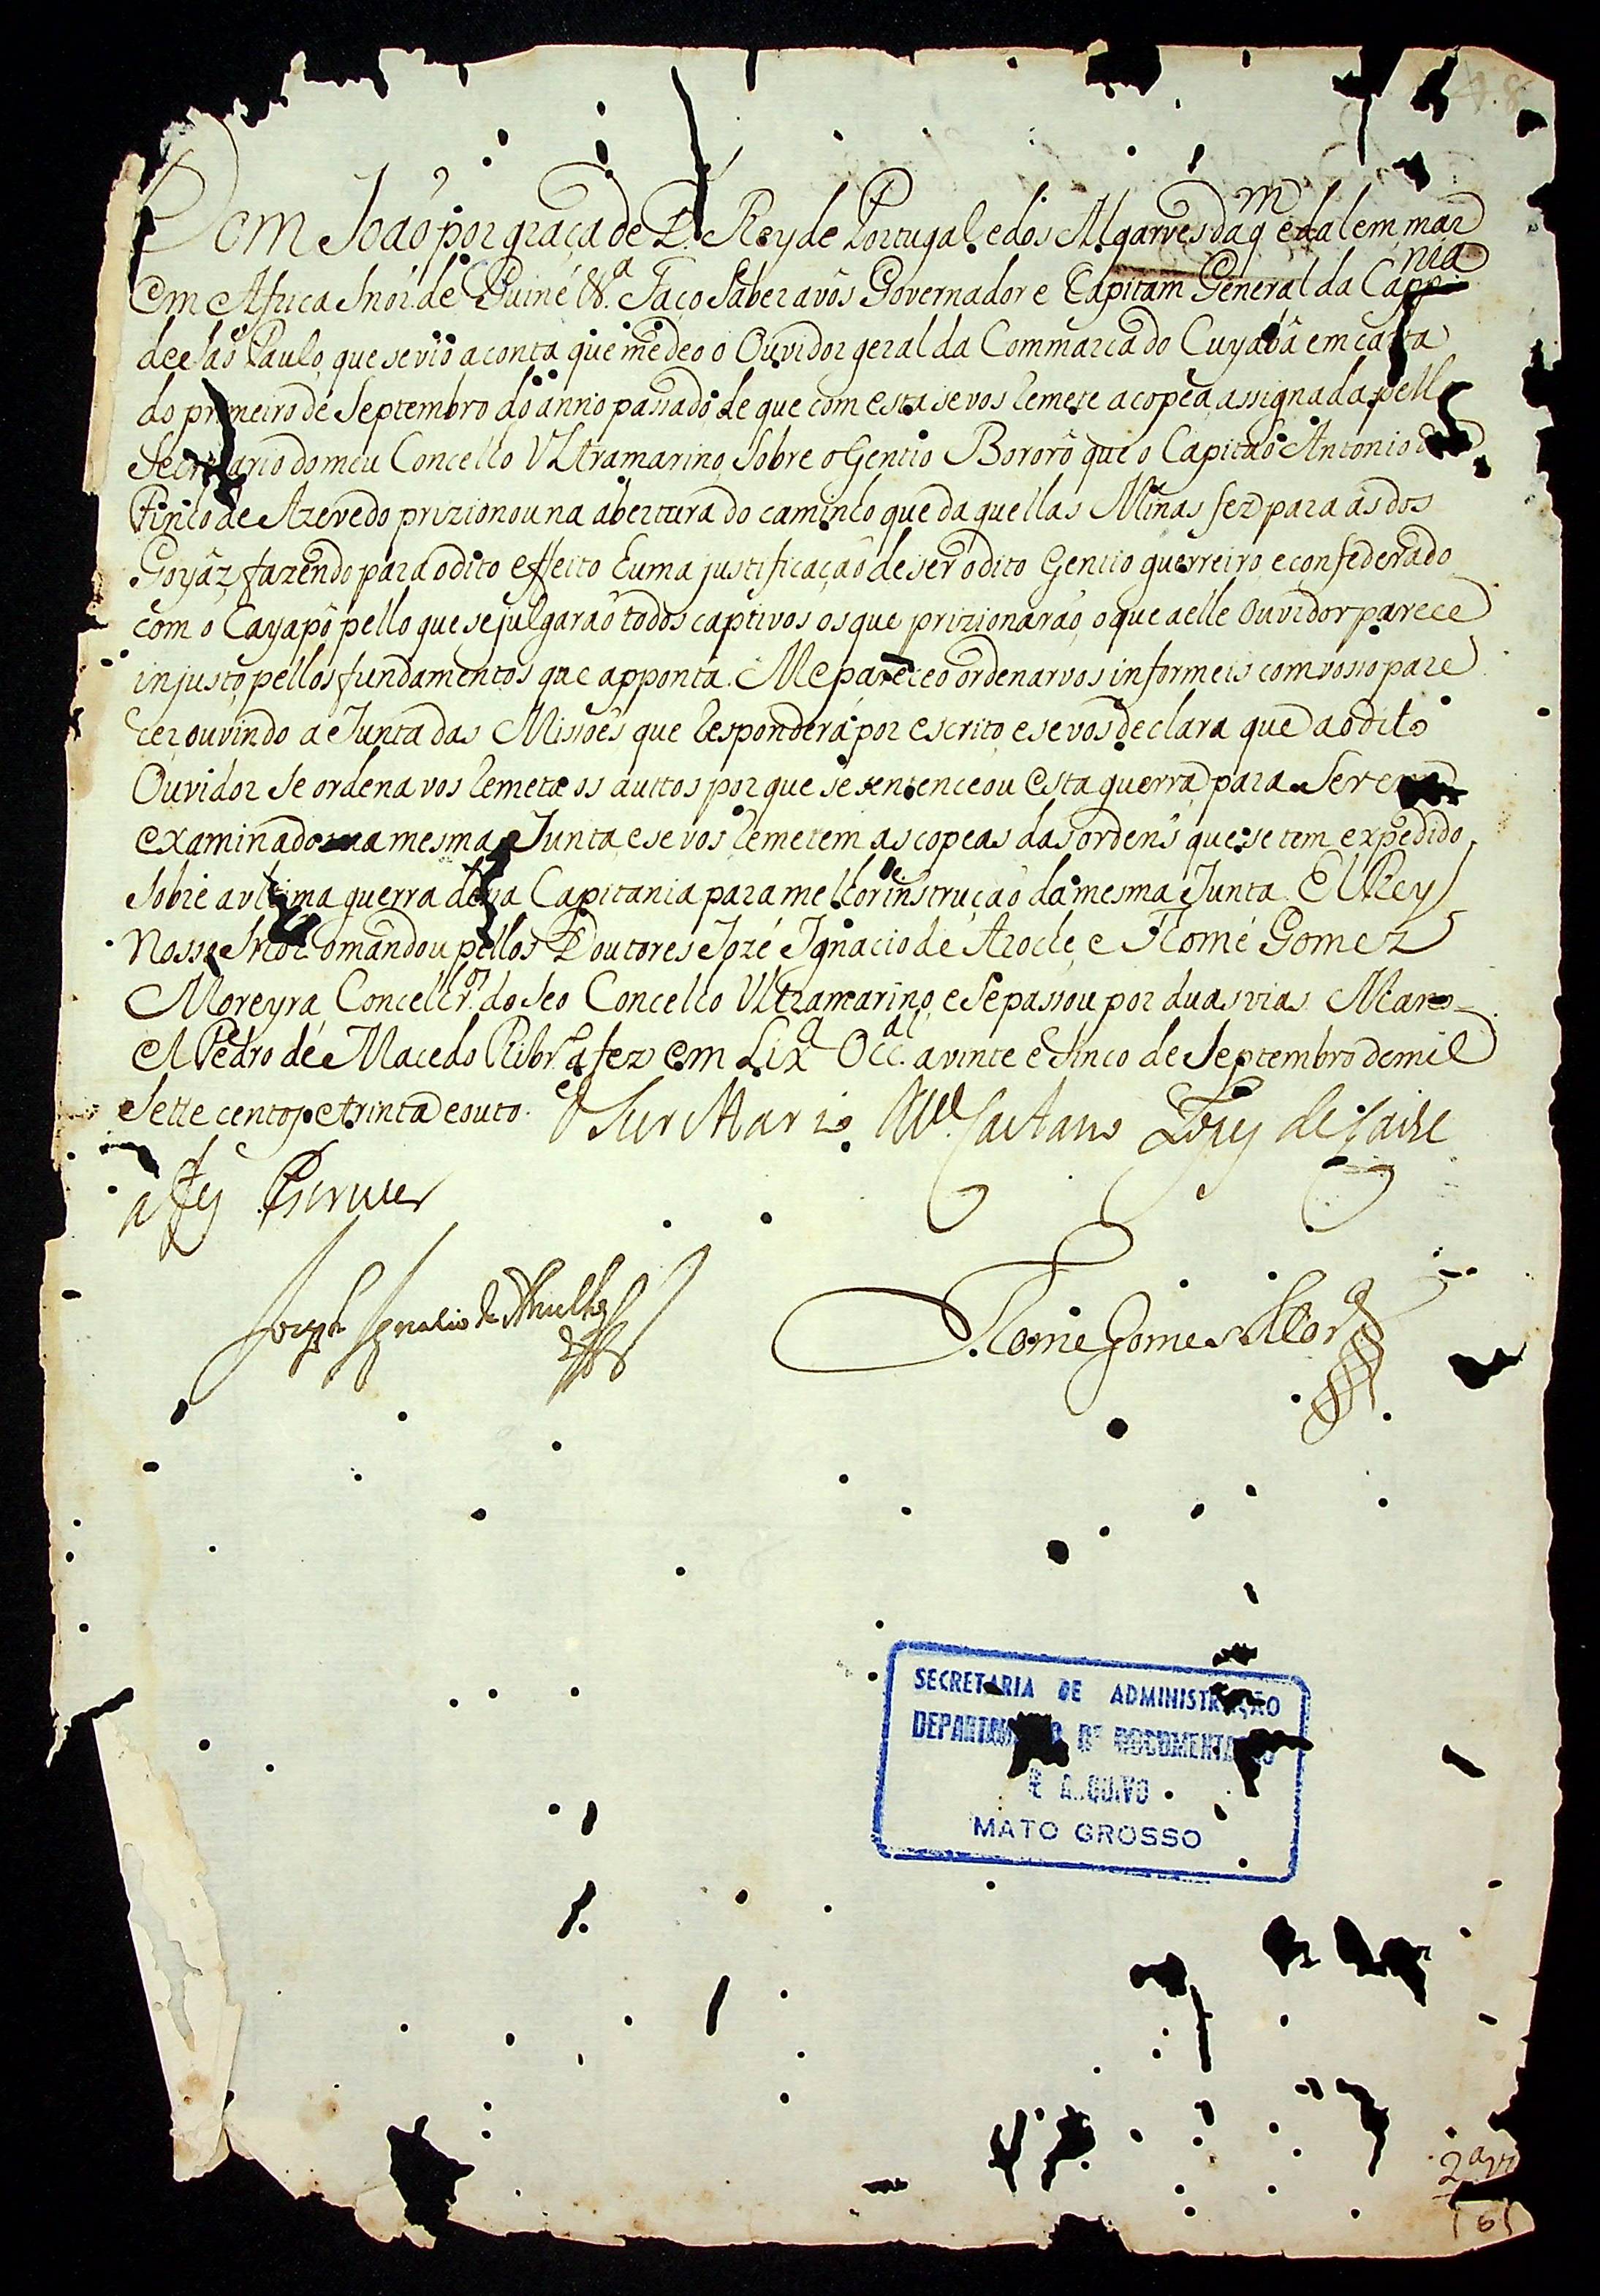 Dom João por graça de D.s Rey de Portugal, e dos Algarves daq.m e dalem mar
em Africa Snõr. de Guinê &.a Faço Saber a vôs Governador e Capitam General da Cappnia
de São Paulo, que se vio a conta que me deo o Ouvidor geral da Commarca do Cuyabâ em carta
do primeiro de Septembro do anno passado, de que com esta se vos remete a copea, assignada pello
Secretario do meu Concelho Ultramarino, Sobre o Gentio Bororô que o Capitão Antonio
Pinho de Azevedo prizionou na abertura do caminho que daquellas Minas fez para as dos
Goyâz, fazendo para o dito effeito huma justificação de ser o dito Gentio guerreiro, e confederado
com o Cayapô pello que se julgarão todos captivos os que prizionarão, o que a elle Ouvidor parece
injusto pellos fundamentos que apponta. Me pareceo ordenarvos informeis com vosso pare
cer ouvindo a Junta das Missões que responderá por escrito, e se vos declara que ao dito
Ouvidor se ordena vos remeta os auttos por que se sentenceou esta guerra, para serem
examinados na mesma Junta, e se vos remetem as copeas das ordens que se tem expedido
Sobre a ultima guerra dessa Capitania para melhor instrução da mesma Junta. El Rey
Nosso Snõr. o mandou pellos Doutores Jozé Ignacio de Aroche, e Thomé Gomez
Moreyra, Concelhr.os do Seo Concelho Ultramarino, e Se passou por duas vias.
Pedro de Macedo Ribr.o a fez em Lix.a Occ.al a vinte e Sinco de Septembro de mil
Sette centos, e trinta e outo. O Secretario M.el Caetano Lopes de Lavre
a fez Escrever
Joseph Ignacio de Arouche
Thome Gomes Mor.a
SECRETARIA DE ADMINISTRAÇÃO
DEPARTAMENTO DE DOCUMENTAÇÃO
E ARQUIVO
MATO GROSSO
2a